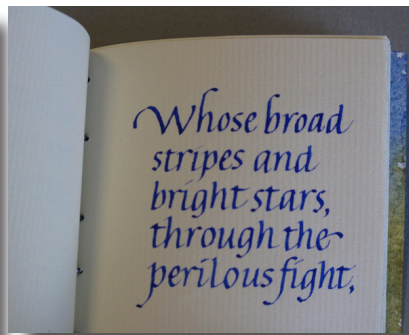 Whose broad
stripes and
bright stars,
through the
perilous fight,